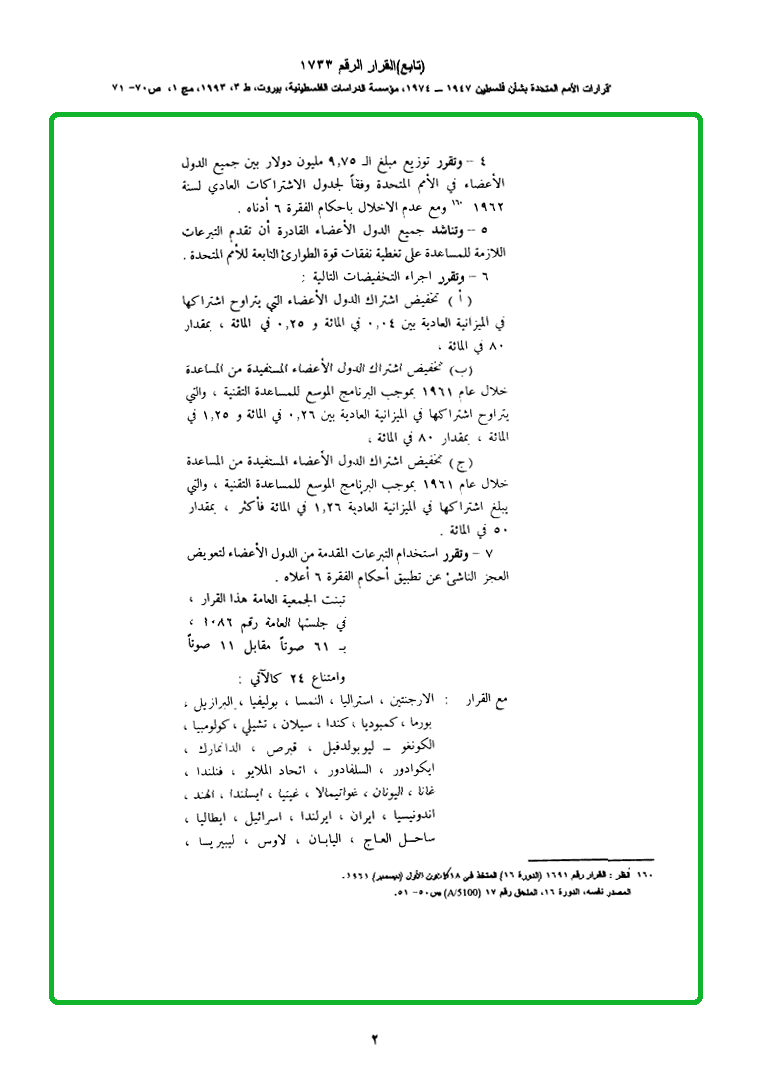 (تابع)القرار الرقم ١٧٣٣
قرارات الأمم المتحدة بشأن فلسطين ١٩٤٧ ــ ١٩٧٤، مؤسسة الدراسات الفلسطينية، بيروت، ط ٣، ١٩٩٣، مج ١، ص٧٠- ٧١
٤ - وتقرر توزيع مبلغ الـ ٩,٧٥ مليون دولار بين جميع الدول
الأعضاء في الأمم المتحدة وفقاً لجدول الاشتراكات العادي لسنة
١٩٦٢ ١٦٠ ومع عدم الاخلال باحكام الفقرة ٦ أدناه .
٥ - وتناشد جميع الدول الأعضاء القادرة أن تقدم التبرعات
اللازمة للمساعدة على تغطية نفقات قوة الطوارئ التابعة للأمم المتحدة .
٦ - وتقرر اجراء التخفيضات التالية :
( أ ) تخفيض اشتراك الدول الأعضاء التي يتراوح اشتراكها
في الميزانية العادية بين ٠,٠٤ في المائة و ٠,٢٥ في المائة ، بمقدار
٨٠ في المائة ،
(ب) تخفيض اشتراك الدول الأعضاء المستفيدة من المساعدة
خلال عام ١٩٦١ بموجب البرنامج الموسع للمساعدة التقنية ، والتي
يتراوح اشتراكها في الميزانية العادية بين ٠,٢٦ في المائة و ١,٢٥ في
المائة ، بمقدار ٨٠ في المائة ،
(ج) تخفيض اشتراك الدول الأعضاء المستفيدة من المساعدة
خلال عام ١٩٦١ بموجب البرنامج الموسع للمساعدة التقنية ، والتي
يبلغ اشتراكها في الميزانية العادية ١,٢٦ في المائة فأكثر ، بمقدار
٥٠ في المائة .
٧ - وتقرر استخدام التبرعات المقدمة من الدول الأعضاء لتعويض
العجز الناشئ عن تطبيق أحكام الفقرة ٦ أعلاه .
تبنت الجمعية العامة هذا القرار ،
في جلستها العامة رقم ١٠٨٦ ،
بـ ٦١ صوتاً مقابل ١١ صوتاً
وامتناع ٢٤ كالآتي :
مع القرار : الارجنتين ، استراليا ، النمسا ، بوليفيا ، البرازيل ،
بورما ، كمبوديا ، كندا ، سيلان ، تشيلي ، كولومبيا ،
الكونغو ــ ليوبولدفيل ، قبرص ، الدانمارك ،
ايكوادور ، السلفادور ، اتحاد الملايو ، فنلندا ،
غانا ، اليونان ، غواتيمالا ، غينيا ، ايسلندا ، الهند ،
اندونيسيا ، ايران ، ايرلندا ، اسرائيل ، ايطاليا ،
ساحـل العـاج ، اليابـان ، لاوس ، ليبيريـا ،
١٦٠ أنظر : القرار رقم ١٦٩١ (الدورة ١٦) المتخذ في ١٨كانون الأول (ديسمبر) ١٩٦١.
المصدر نفسه، الدورة ١٦، الملحق رقم ١٧ (A/5100) ص٥٠- ٥١.
٢